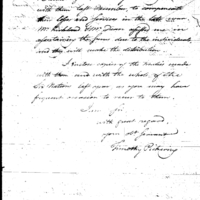 with them last December to compensate
their Aftr and Services in the late
Mr Kirkland & Mr Dean assist me in
ascertaining the sums due to the individuals
and they will make the distribution
I enclose copies of the Treaties made
with them and with the whole of the
Six Nations left open as you may have
frequent occasion to recur to them.
I am Sir
with great regard
your Ob Servant
Timothy Pickering